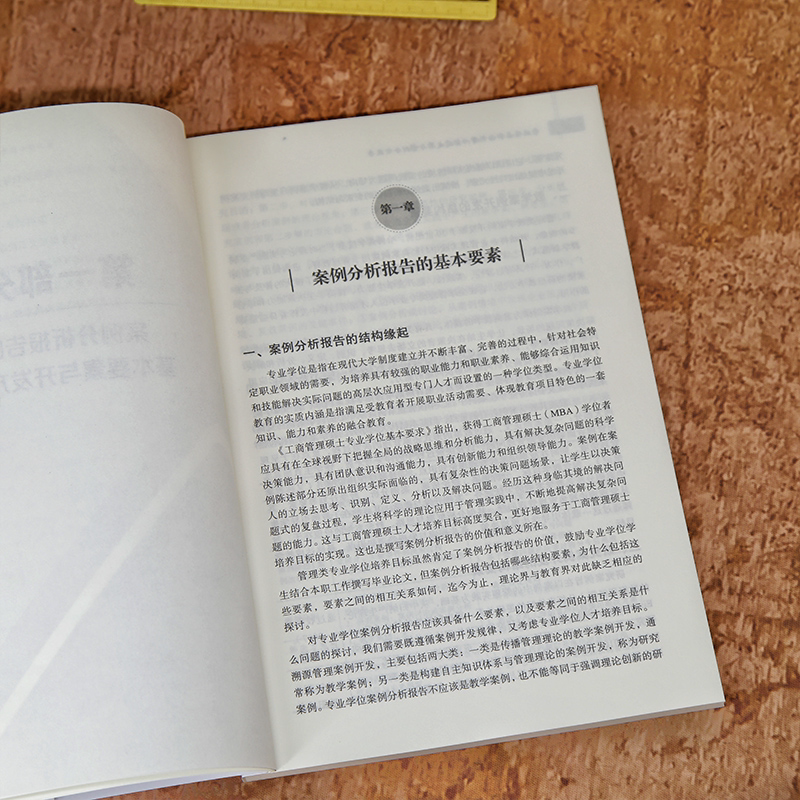 第一章
案例分析报告的基本要素
一、案例分析报告的结构缘起
专业学位是指在现代大学制度建立并不断丰富、完善的过程中，针对社会特
定职业领域的需要，为培养具有较强的职业能力和职业素养、能够综合运用知识
和技能解决实际问题的高层次应用型专门人才而设置的一种学位类型。专业学位
教育的实质内涵是指满足受教育者开展职业活动需要、体现教育项目特色的一套
知识、能力和素养的融合教育。
《工商管理硕士专业学位基本要求》指出，获得工商管理硕士（MBA）学位者
应具有在全球视野下把握全局的战略思维和分析能力，具有解决复杂问题的科学
决策能力，具有团队意识和沟通能力，具有创新能力和组织领导能力。案例在案
例陈述部分还原出组织实际面临的，具有复杂性的决策问题场景，让学生以决策
人的立场去思考、识别、定义、分析以及解决问题。经历这种身临其境的解决问
题式的复盘过程，学生将科学的理论应用于管理实践中，不断地提高解决复杂问
题的能力。这与工商管理硕士人才培养目标高度契合，更好地服务于工商管理硕士
培养目标的实现。这也是撰写案例分析报告的价值和意义所在。
管理类专业学位培养目标虽然肯定了案例分析报告的价值，鼓励专业学位学
生结合本职工作撰写毕业论文，但案例分析报告包括哪些结构要素，为什么包括这
些要素，要素之间的相互关系如何，迄今为止，理论界与教育界对此缺乏相应的
探讨。
对专业学位案例分析报告应该具备什么要素，以及要素之间的相互关系是什
么问题的探讨，我们需要既遵循案例开发规律，又考虑专业学位人才培养目标。
溯源管理案例开发，主要包括两大类：一类是传播管理理论的教学案例开发，通
常称为教学案例；另一类是构建自主知识体系与管理理论的案例开发，称为研究
案例。专业学位案例分析报告不应该是教学案例，也不能等同于强调理论创新的研